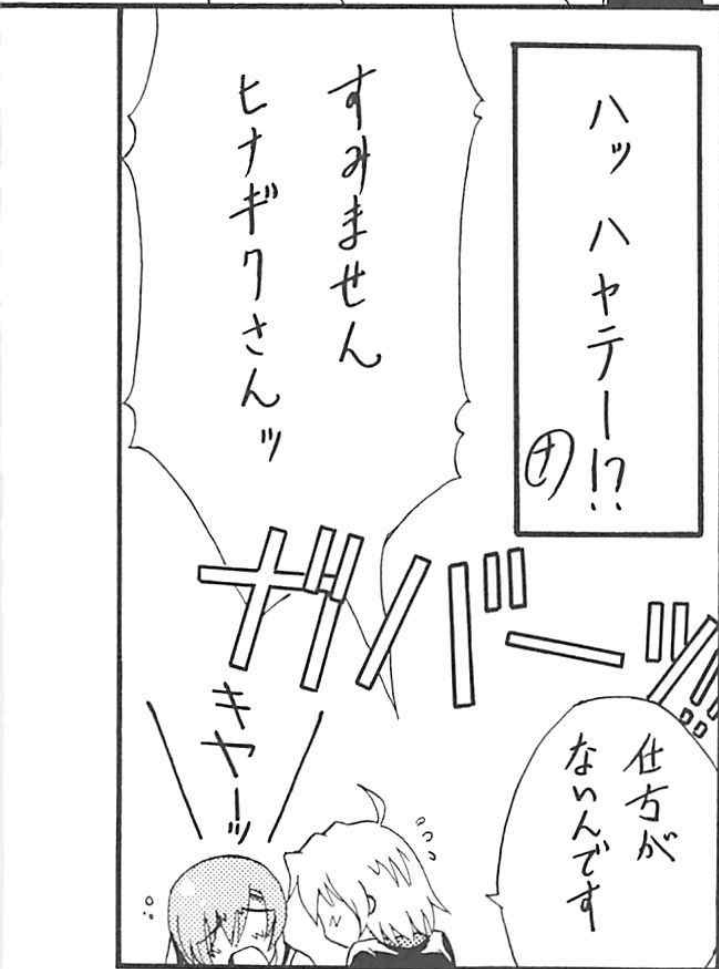 ハッ ハヤテー!?
ナ
すみません
ヒナギクさんッ
ガバーッ
キャーッ
仕方が
ないんです